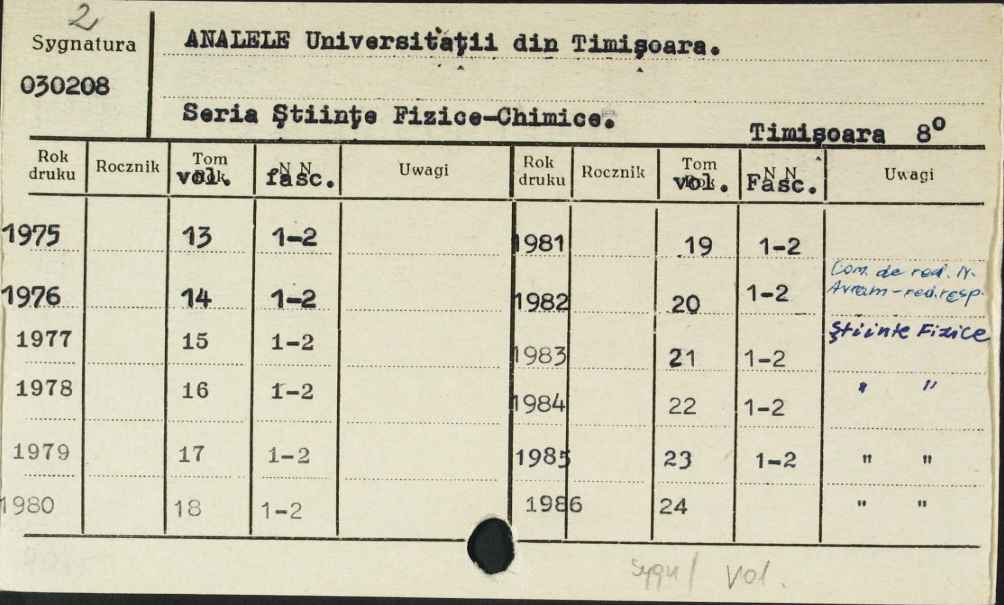 2
Sygnatura
030208
ANALELE Universităţii din Timişoara.
Seria Ştiinţe Fizice-Chimice.
Timişoara 8°
Rok druku Rocznik Tom vol. NN fasc. Uwagi Rok druku Rocznik Tom vol. NN Fasc. Uwagi
1975 13 1-2 1981 19 1-2
1976 14 1-2 1982 20 1-2 Com. de red. N. Avram - red. resp.
1977 15 1-2 1983 21 1-2 Ştiinte Fizice
1978 16 1-2 1984 22 1-2 " "
1979 17 1-2 1985 23 1-2 " "
1980 18 1-2 1986 24 " "
Sygn/ vol.